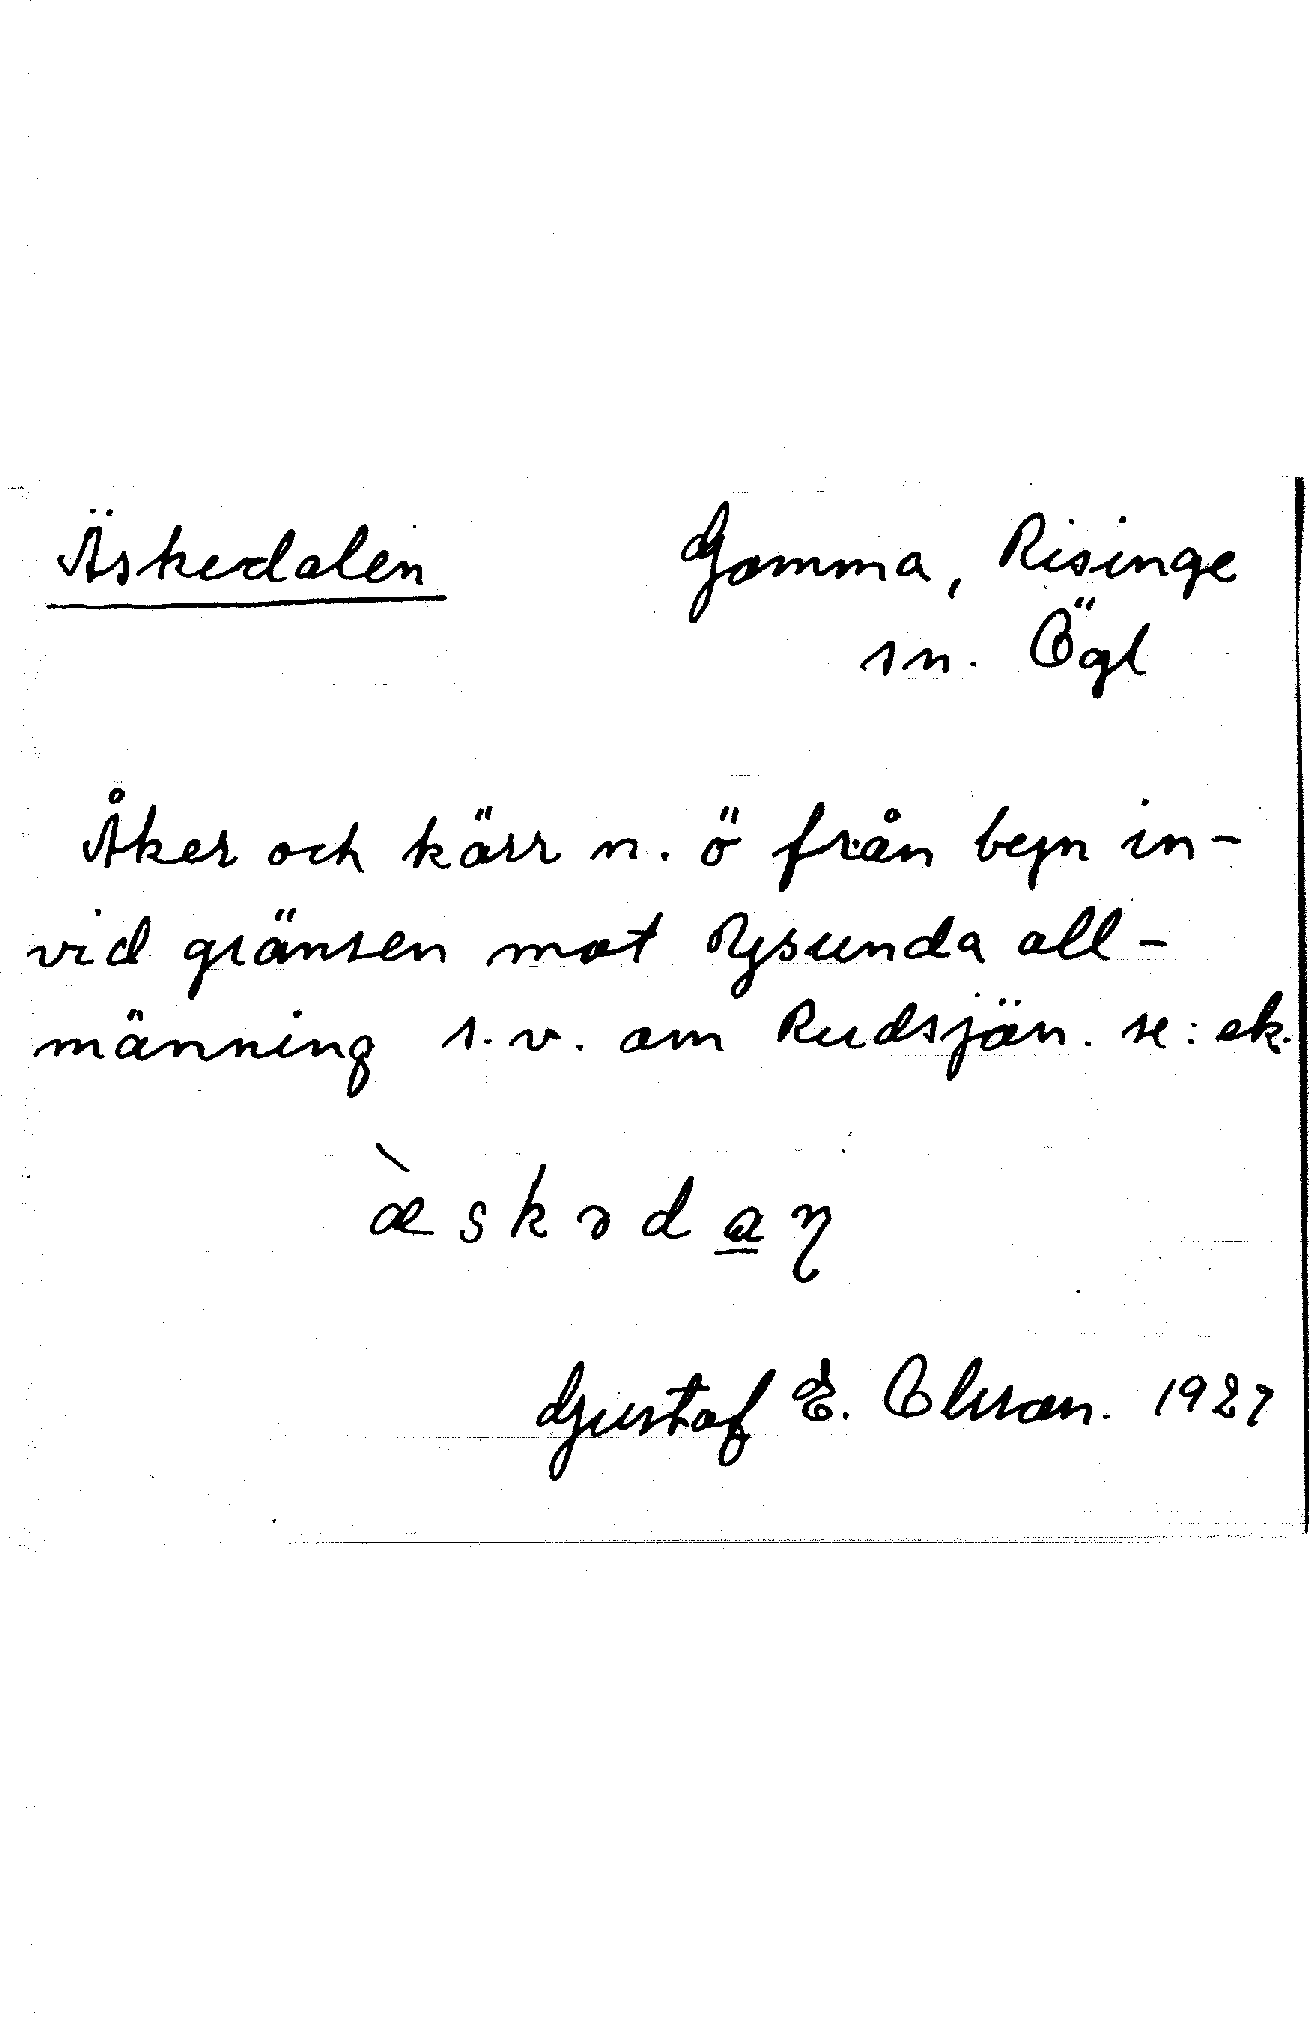 Äskedalen Gomma, Risinge
sn. Ögl
Åker och kärr n. ö från byn in-
vid gränsen mot Rysunda all-
männing s.v. om Rudsjön. se: ek.
æ̀skədaη
Gustaf E. Olsson. 1927